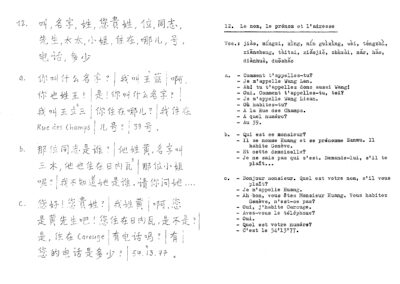 12. 叫,名字,姓,您贵姓,位,同志,
先生,太太,小姐,住在,哪儿,号,
电话,多少
a. 你叫什么名字?|我叫王蓝|啊,
你也姓王!|是!你叫什么名字?|
我叫王三|你住在哪儿?|我住在
Rue des Champs|几号?|39号.
b. 那位同志是谁?|他姓黄,名字叫
三木,他也住在日内瓦|那位小姐
呢?|我不知道她是谁,请你问她....
c. 您好!您贵姓?|我姓黄|啊,您
是黄先生吧!您住在日内瓦,是不是?|
是,住在 Carouge|有电话吗?|有|
您的电话是多少?|54.13.77.
12. Le nom, le prénom et l'adresse
Voc.: jiào, míngzi, xìng, nín guìxìng, wèi, tóngzhì,
xiānsheng, tàitai, xiǎojiě, zhùzài, nǎr, hào,
diànhuà, duōshǎo
a. - Comment t'appelles-tu?
- Je m'appelle Wang Lan.
- Ah! tu t'appelles donc aussi Wang!
- Oui. Comment t'appelles-tu, toi?
- Je m'appelle Wang Lisan.
- Où habites-tu?
- J'habite Rue des Champs.
- A quel numéro?
- Au 39.
b. - Qui est ce monsieur?
- Il se nomme Huang et se prénomme Sanmu. Il
habite Genève.
- Et cette demoiselle?
- Je ne sais pas qui c'est. Demande-lui, s'il te
plaît...
c. - Bonjour monsieur. Quel est votre nom, s'il vous
plaît?
- Je m'appelle Huang.
- Ah bon, vous êtes Monsieur Huang. Vous habitez
Genève, n'est-ce pas?
- Oui, j'habite Carouge.
- Avez-vous le téléphone?
- Oui.
- Quel est votre numéro?
- C'est le 54'13"77.